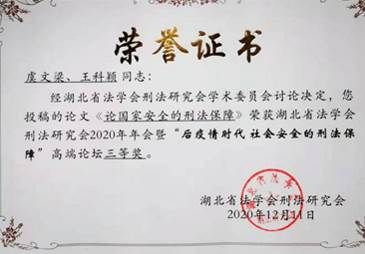 荣誉证书
虞文梁、王科颖同志：
经湖北省法学会刑法研究会学术委员会讨论决定，您
投稿的论文《论国家安全的刑法保障》荣获湖北省法学会
刑法研究会2020年年会暨“后疫情时代 社会安全的刑法保
障”高端论坛三等奖。
湖北省法学会刑法研究会
2020年12月11日